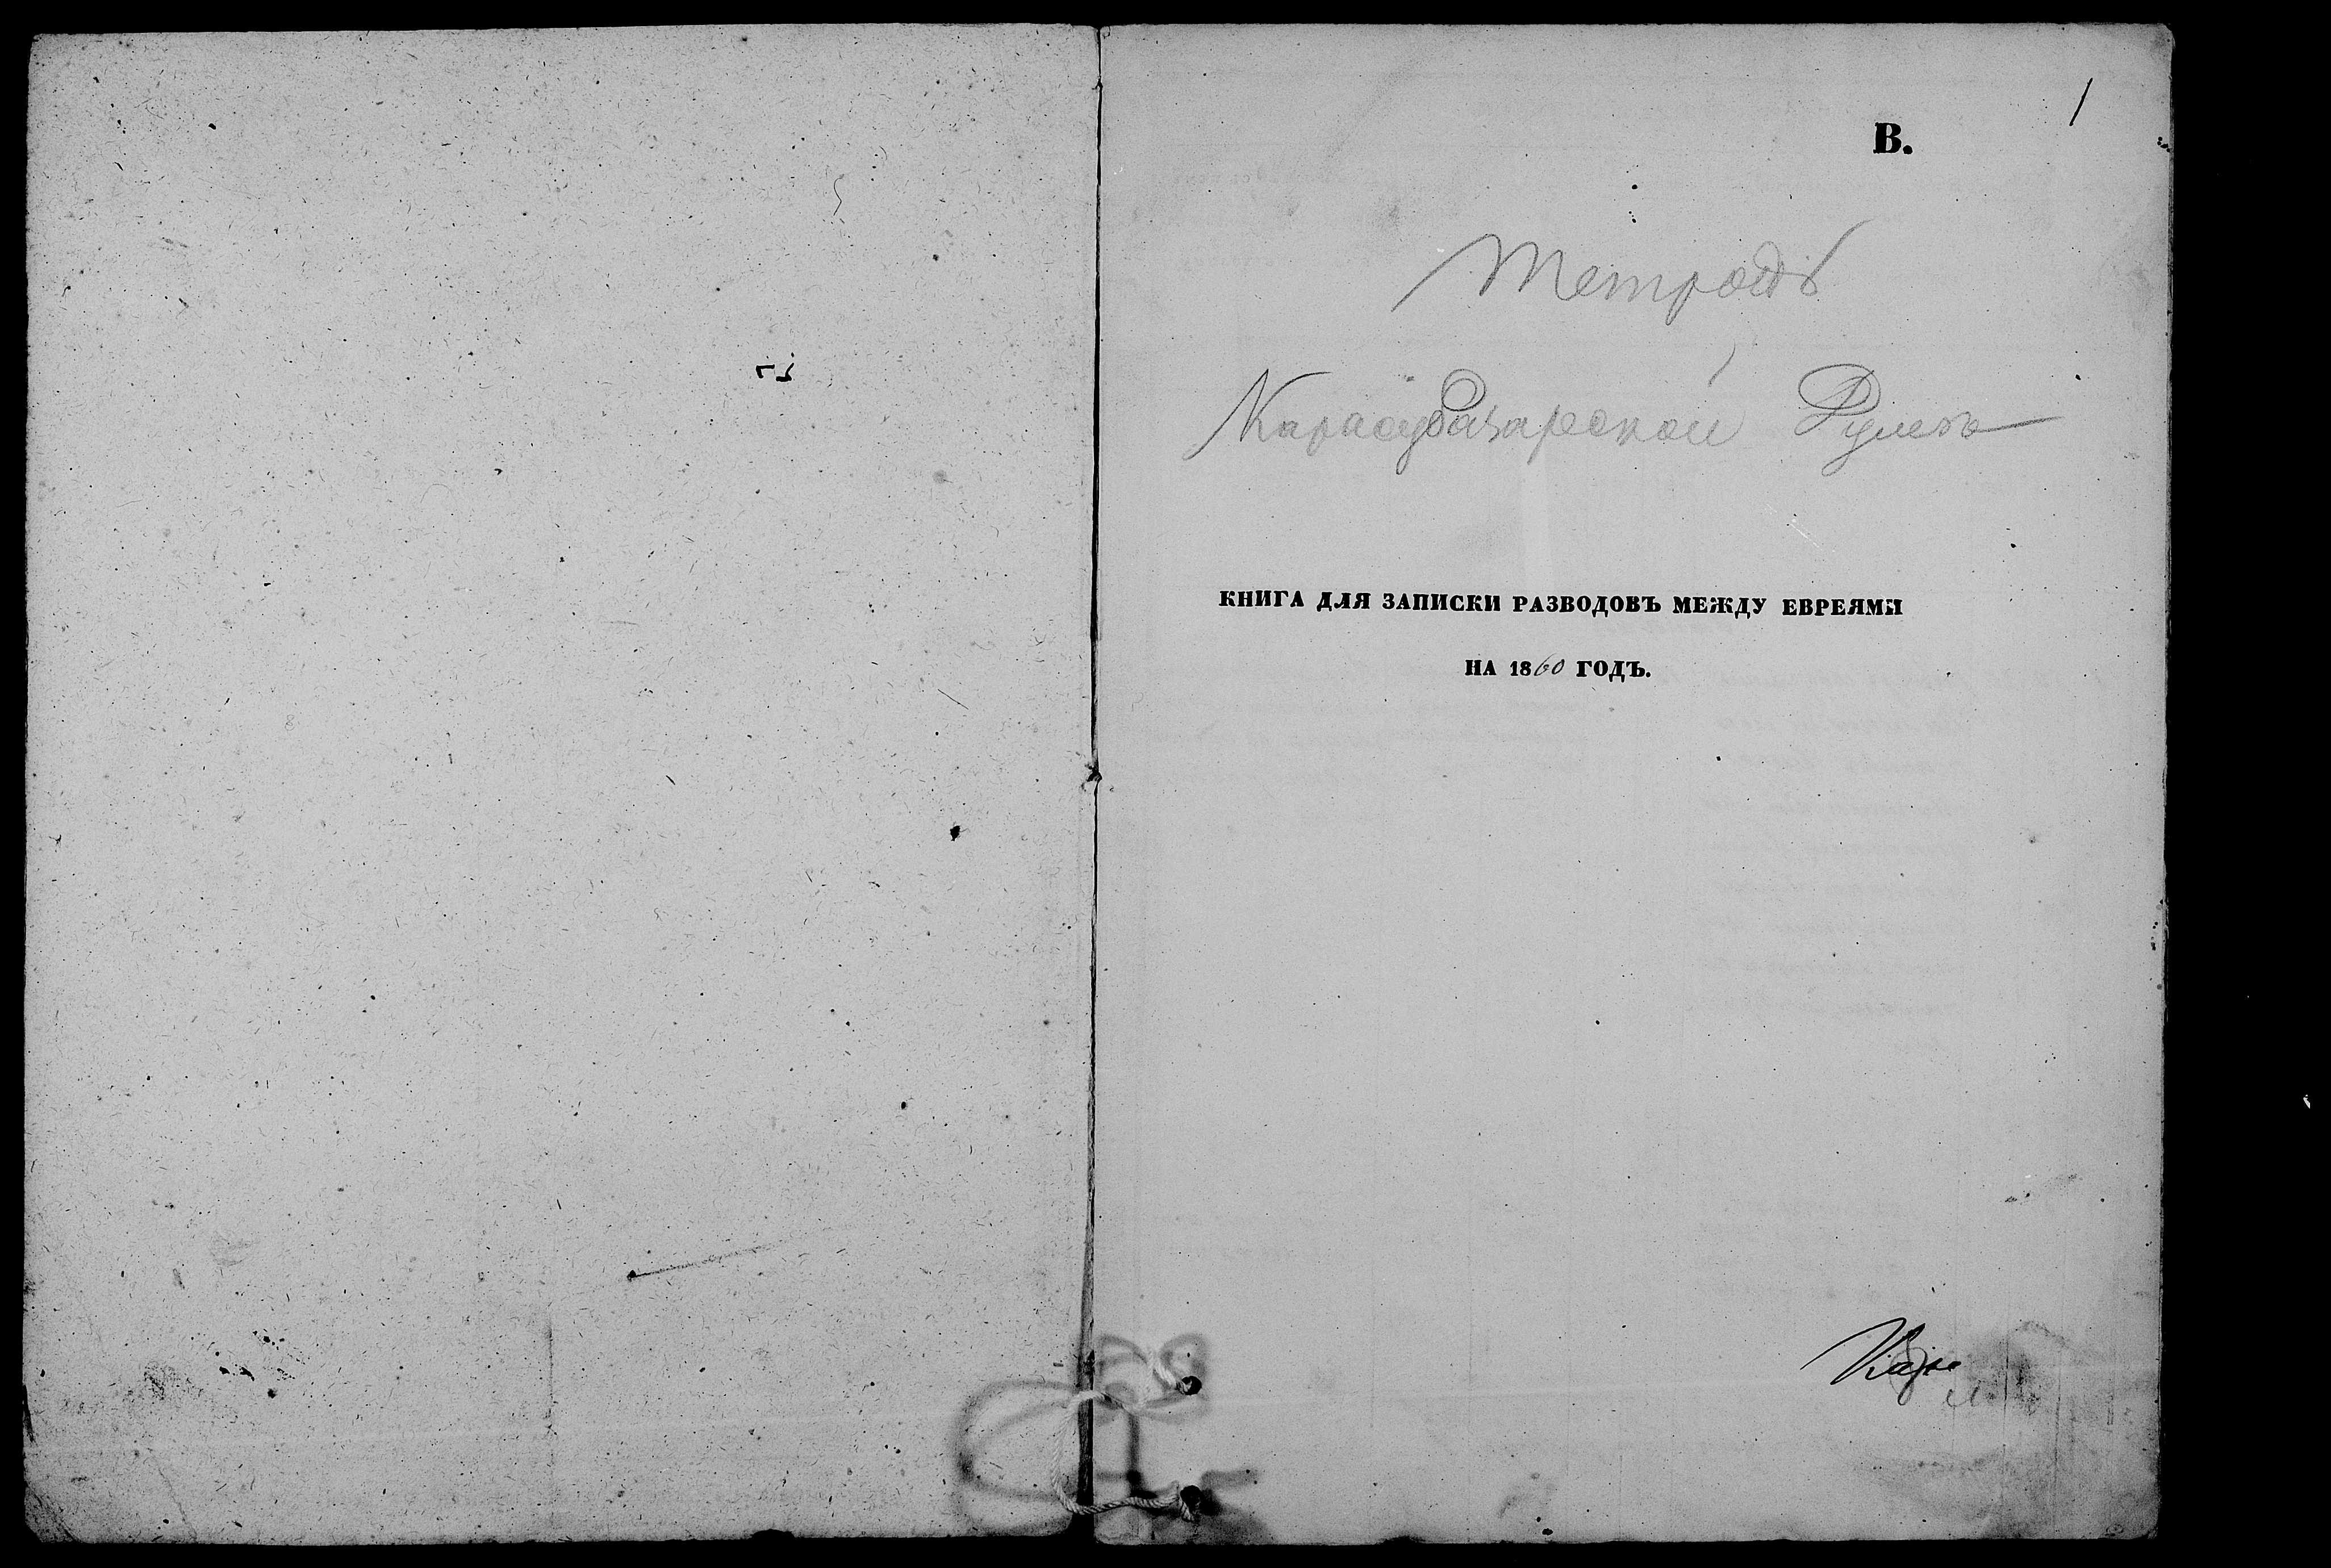 1
В.
Тетрадь
Карасубазарской
КНИГА ДЛЯ ЗАПИСКИ РАЗВОДОВЪ МЕЖДУ ЕВРЕЯМИ
НА 1860 ГОДЪ.